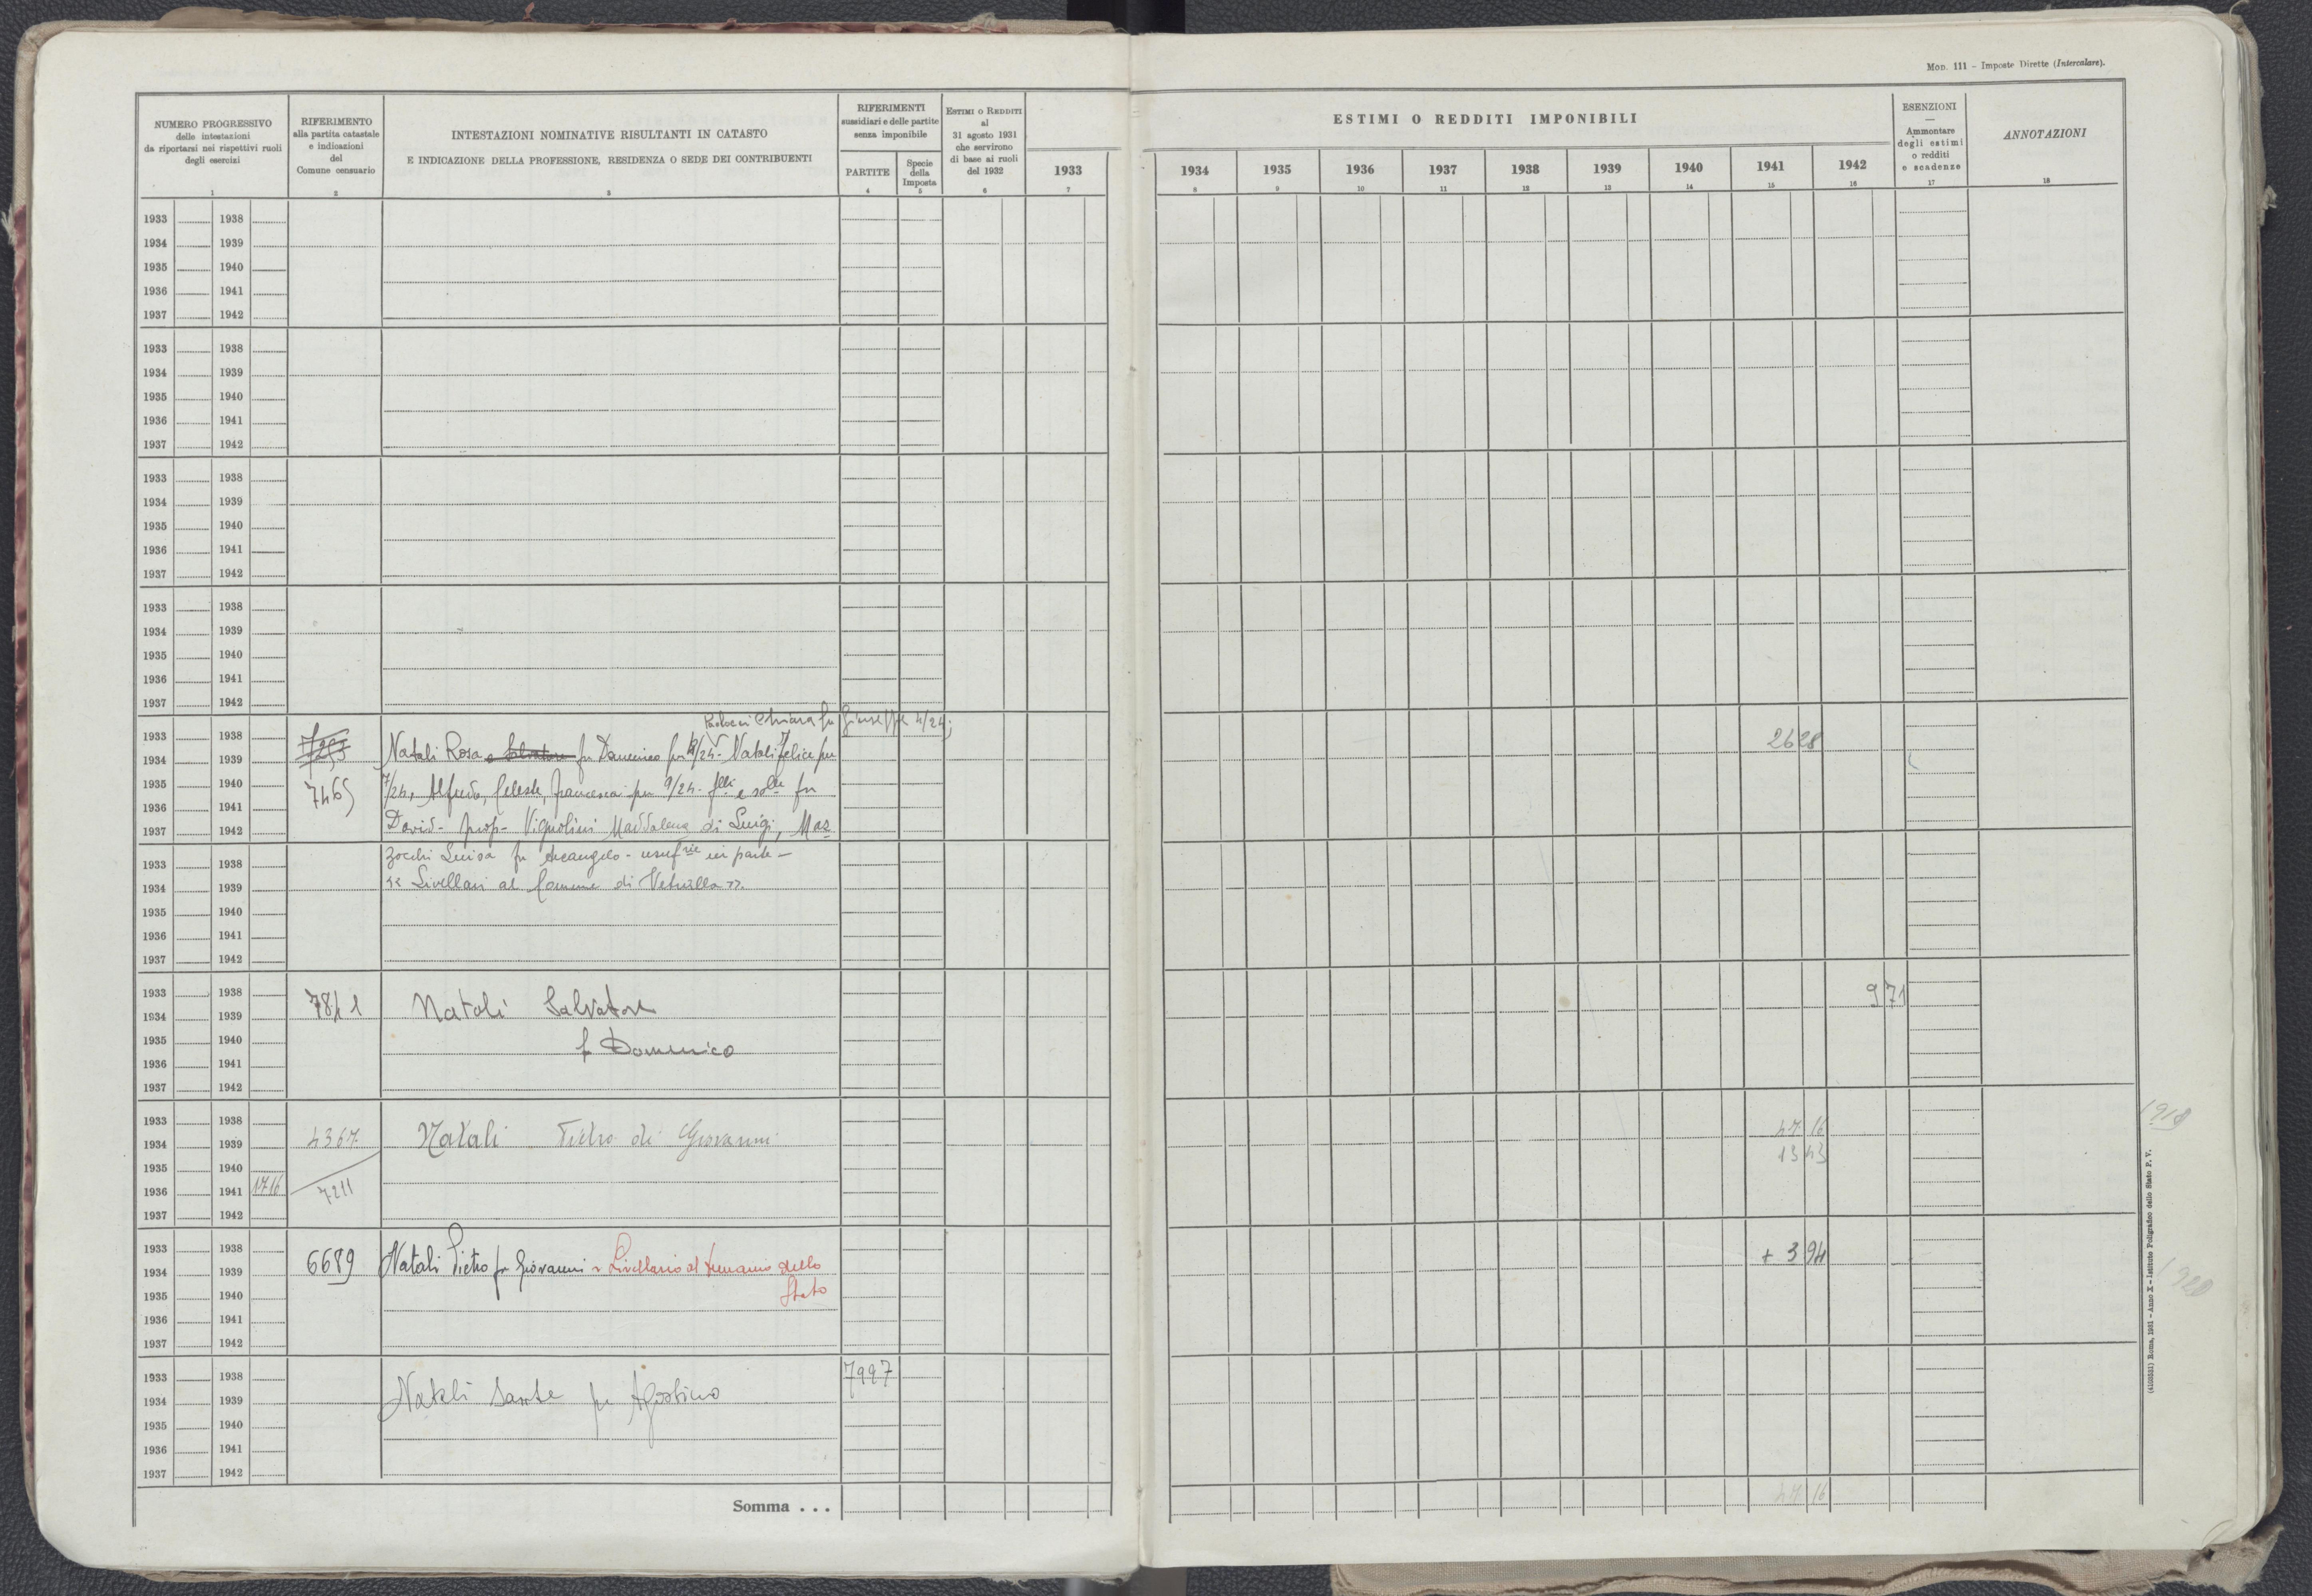 Mod. 111 – Imposte Dirette (Intercalare).
NUMERO PROGRESSIVO
delle intestazioni
da riportarsi nei rispettivi ruoli
degli esercizi
1
RIFERIMENTO
alla partita catastale
e indicazioni
del
Comune censuario
2
INTESTAZIONI NOMINATIVE RISULTANTI IN CATASTO
E INDICAZIONE DELLA PROFESSIONE, RESIDENZA O SEDE DEI CONTRIBUENTI
3
RIFERIMENTI
sussidiari e delle partite
senza imponibile
PARTITE
4
Specie
della
Imposta
5
ESTIMI O REDDITI
al
31 agosto 1931
che servirono
di base ai ruoli
del 1932
6
1933
7
ESTIMI O REDDITI IMPONIBILI
1934 1935 1936 1937 1938 1939 1940 1941 1942
8 9 10 11 12 13 14 15 16
ESENZIONI
—
Ammontare
degli estimi
o redditi
e scadenze
17
ANNOTAZIONI
18
1933 1938
1934 1939
1935 1940
1936 1941
1937 1942
1933 1938
1934 1939
1935 1940
1936 1941
1937 1942
1933 1938
1934 1939
1935 1940
1936 1941
1937 1942
1933 1938
1934 1939
1935 1940
1936 1941
1937 1942
Chiara fu Giuseppe 4/24;
1933 1938 2628
1934 1939 Natali Rosa e Salvatore fu Domenico per /24 - Natali Felice per
1935 1940 7465 7/24, Alfredo, Celeste, Francesca per 9/24 - flli e solle fu
1936 1941
1937 1942 David - prop - Vignolini Maddalena di Luigi, Maz
1933 1938 zocchi Luisa fu Arcangelo - usufrie in parte -
1934 1939 "Livellari al Comune di Vetralla".
1935 1940
1936 1941
1937 1942
1933 1938 971
1934 1939 7841 Natali Salvatore
1935 1940 f Domenico
1936 1941
1937 1942
1933 1938 47 16
1934 1939 4367 Natali Pietro di Giovanni
1935 1940 13 43
1936 1941 1716 7211
1937 1942
1933 1938 + 3 94
1934 1939 6689 Natali Pietro fu Giovanni Livellario al demanio dello
1935 1940 Stato
1936 1941
1937 1942
1933 1938 7997
1934 1939 Natali Sante fu Agostino
1935 1940
1936 1941
1937 1942
Somma . . . 47 16
1918
1920
(4193551) Roma, 1931 – Anno X – Istituto Poligrafico dello Stato P. V.